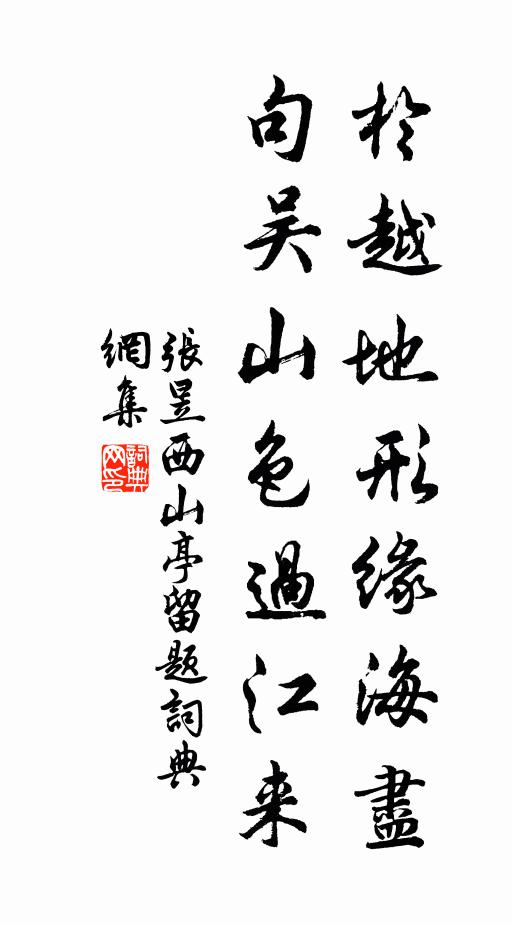 於越地形緣海盡
句吴山色過江来
張昱西山亭留題詞典
網集
詞典网印